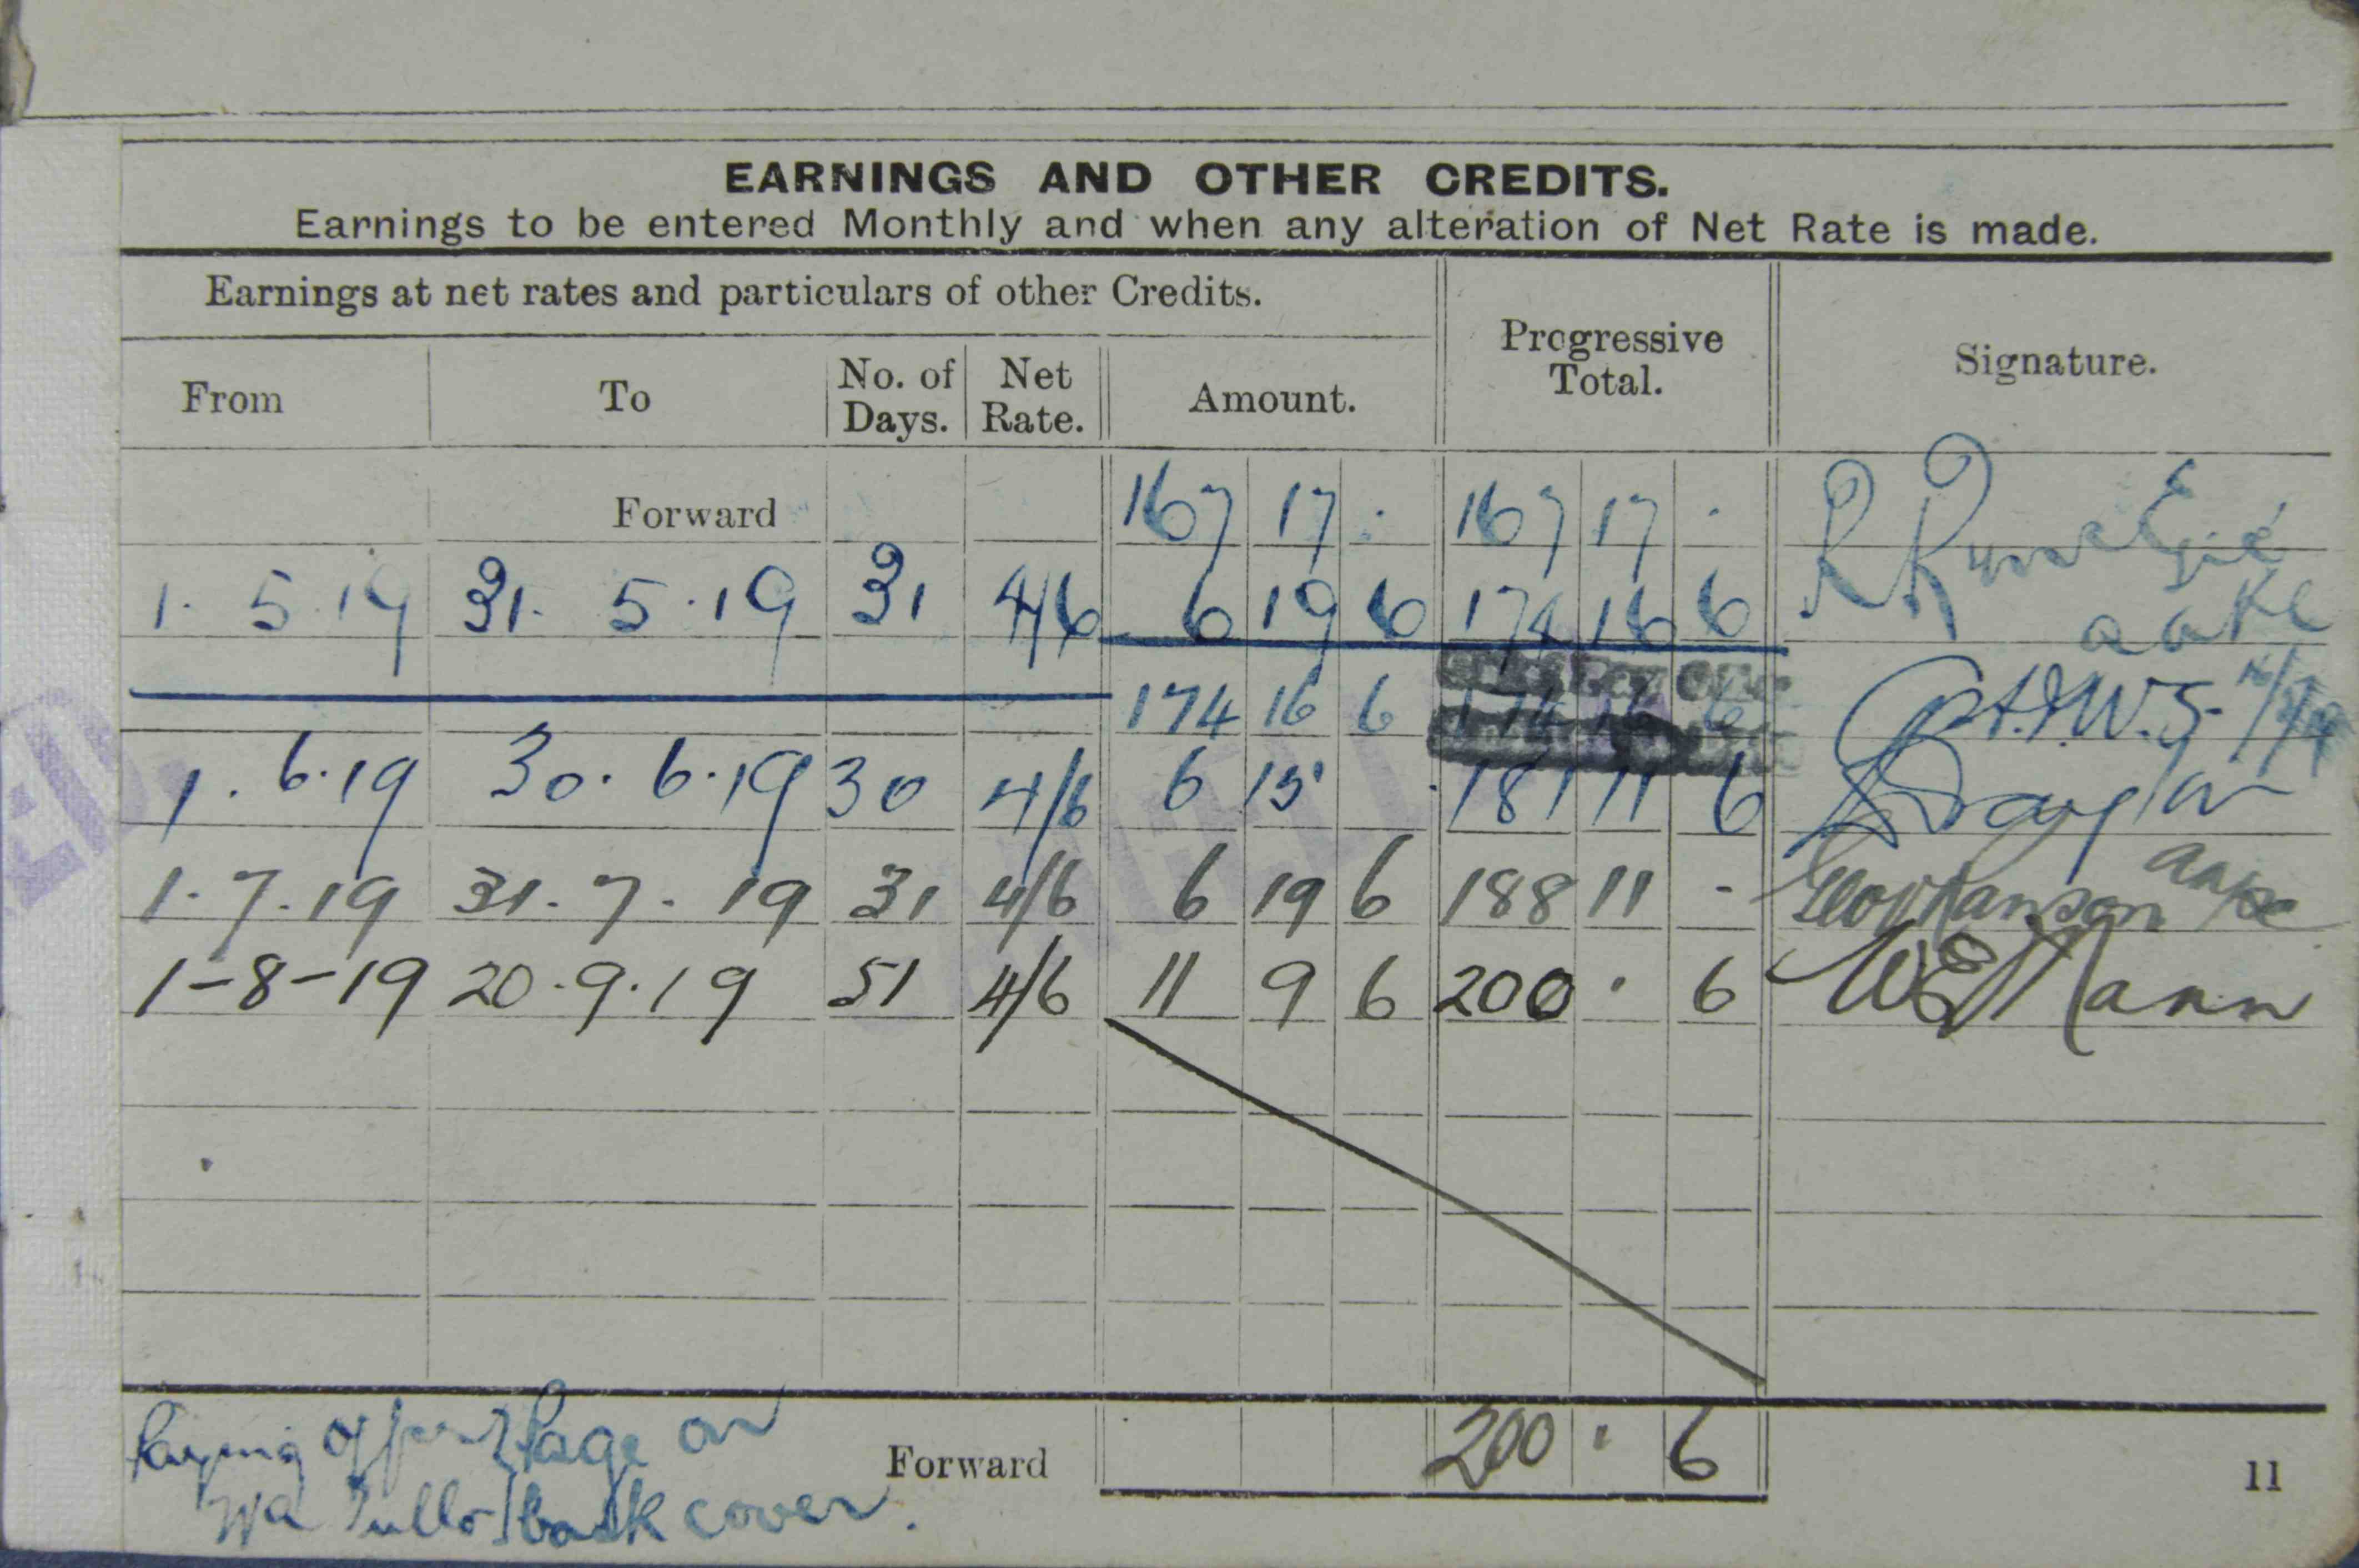 EARNINGS AND OTHER CREDITS.
Earnings to be entered Monthly and when any alteration of Net Rate is made.
Earnings at net rates and particulars of other Credits.
Progressive Total.
Signature.
From To No. of Days. Net Rate. Amount.
Forward 167 17 . 167 17 .
1. 5.19 31. 5.19 31 4/6 6 19 6 174 16 6
174 16 6 174 16 6
1.6.19 30.6.19 30 4/6 6 15 . 181 11 6
1.7.19 31.7.19 31 4/6 6 19 6 188 11 -
1-8-19 20.9.19 51 4/6 11 9 6 200 . 6 W E Mann
Paying Page on
Forward 200 . 6
back cover.
11